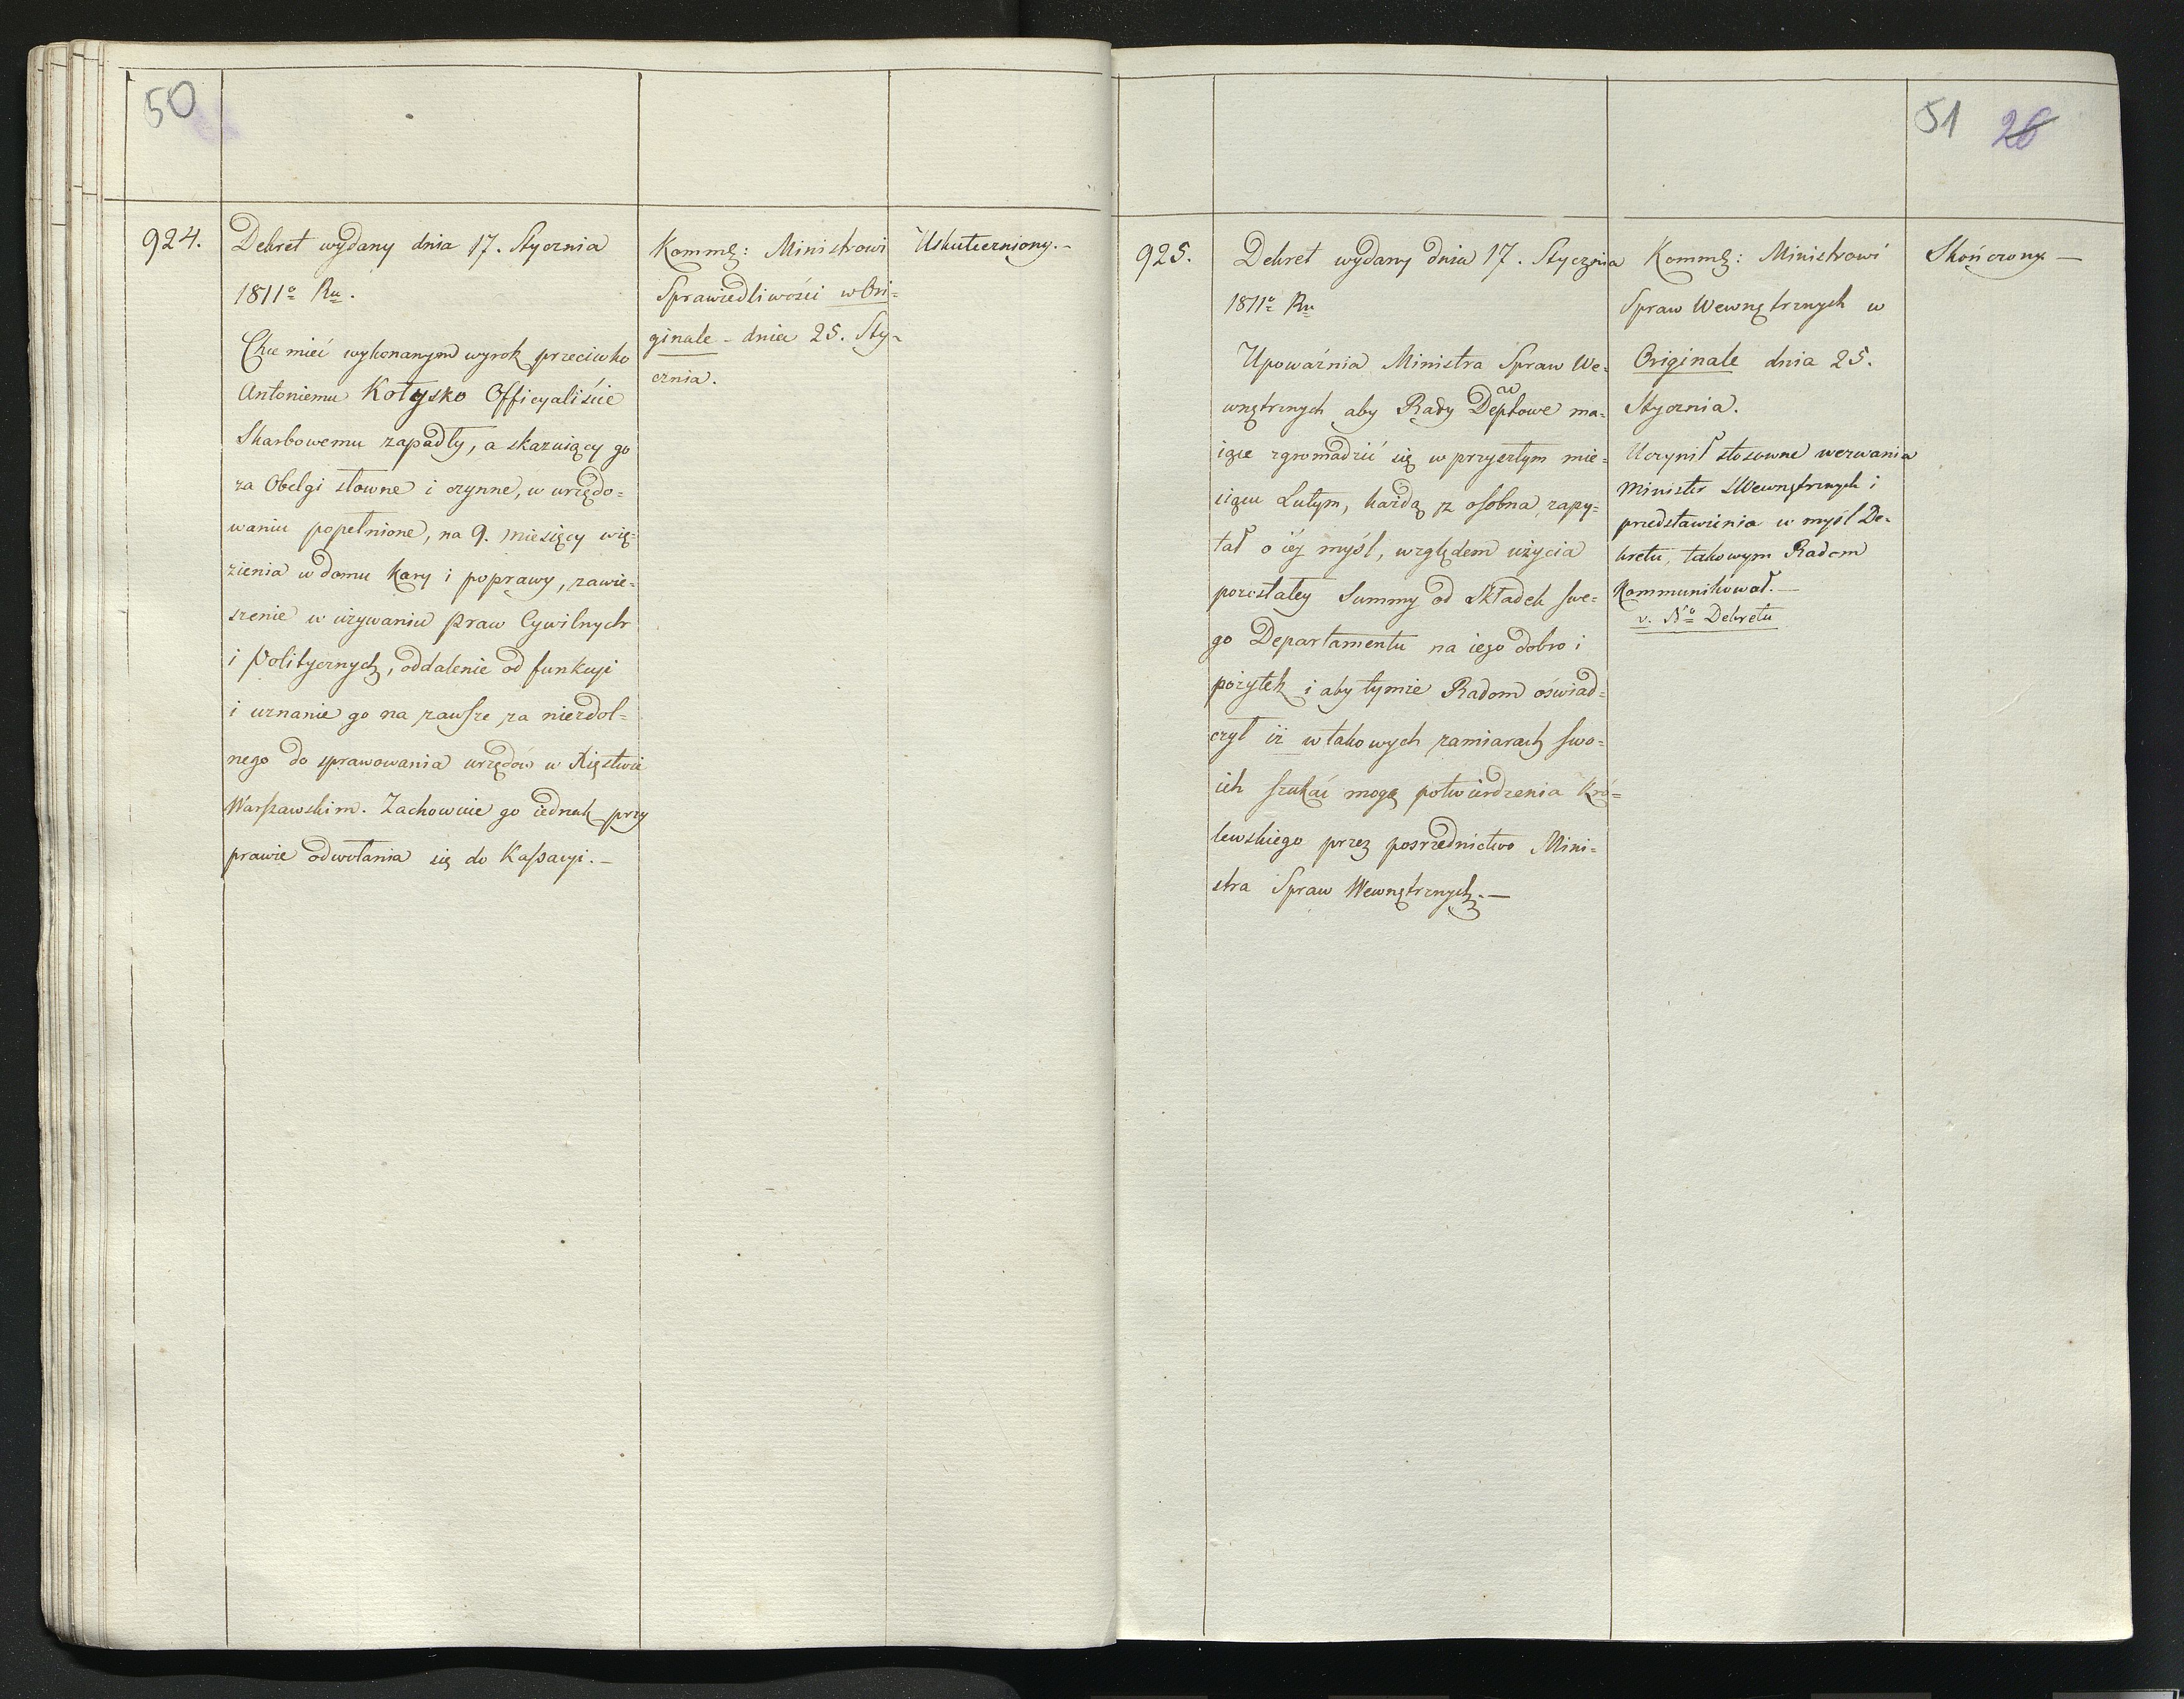 50
924.
Dekret wydany dnia 17. Stycznia
1811º Ru.
Chce mieć wykonanym wyrok przeciwko
Antoniemu Kotysko Officyaliście
Skarbowemu zapadły, a skazuiący go
za Obelgi słowne i czynne, w urzędo=
waniu popełnione, na 9. miesięcy wię=
zienia w domu Kary i poprawy, zawie=
szenie w używaniu praw Cywilnych
i Politycznych, oddalenie od funkcyi
i uznanie go na zawsze za niezdol=
nego do sprawowania urzędów w Xięstwie
Warszawskim. Zachowuie go iednak przy
prawie odwołania się do Kassacyi.—
Kommg: Ministrowi
Sprawiedliwości w Ori=
ginale - dnia 25. Sty=
cznia.
Uskuteczniony.—
51 26
925.
Dekret wydany dnia 17. Stycznia
1811º Ru
Upoważnia Ministra Spraw We=
wnętrznych aby Rady Deptowe ma=
iące zgromadzić się w przyszłym mie=
siącu Lutym, każdą z osobna, zapy=
tał o iéy myśl, względem użycia
pozostałey Summy od Składek swe=
go Departamentu na iego dobro i
pożytek i aby tymże Radom oświad=
czył iż w takowych zamiarach swo=
ich szukać mogą potwierdzenia Kró=
lewskiego przez posrzednictwo Mini=
stra Spraw Wewnętrznych.—
Kommg: Ministrowi
Spraw Wewnętrznych w
Originale dnia 25.
Stycznia.
Uczynił stosowne wezwania
Minister SWewnętrznych i
przedstawienia w myśl De=
kretu, takowym Radom
Kommunikował.—
v. Nº Dekretu
Skończony —